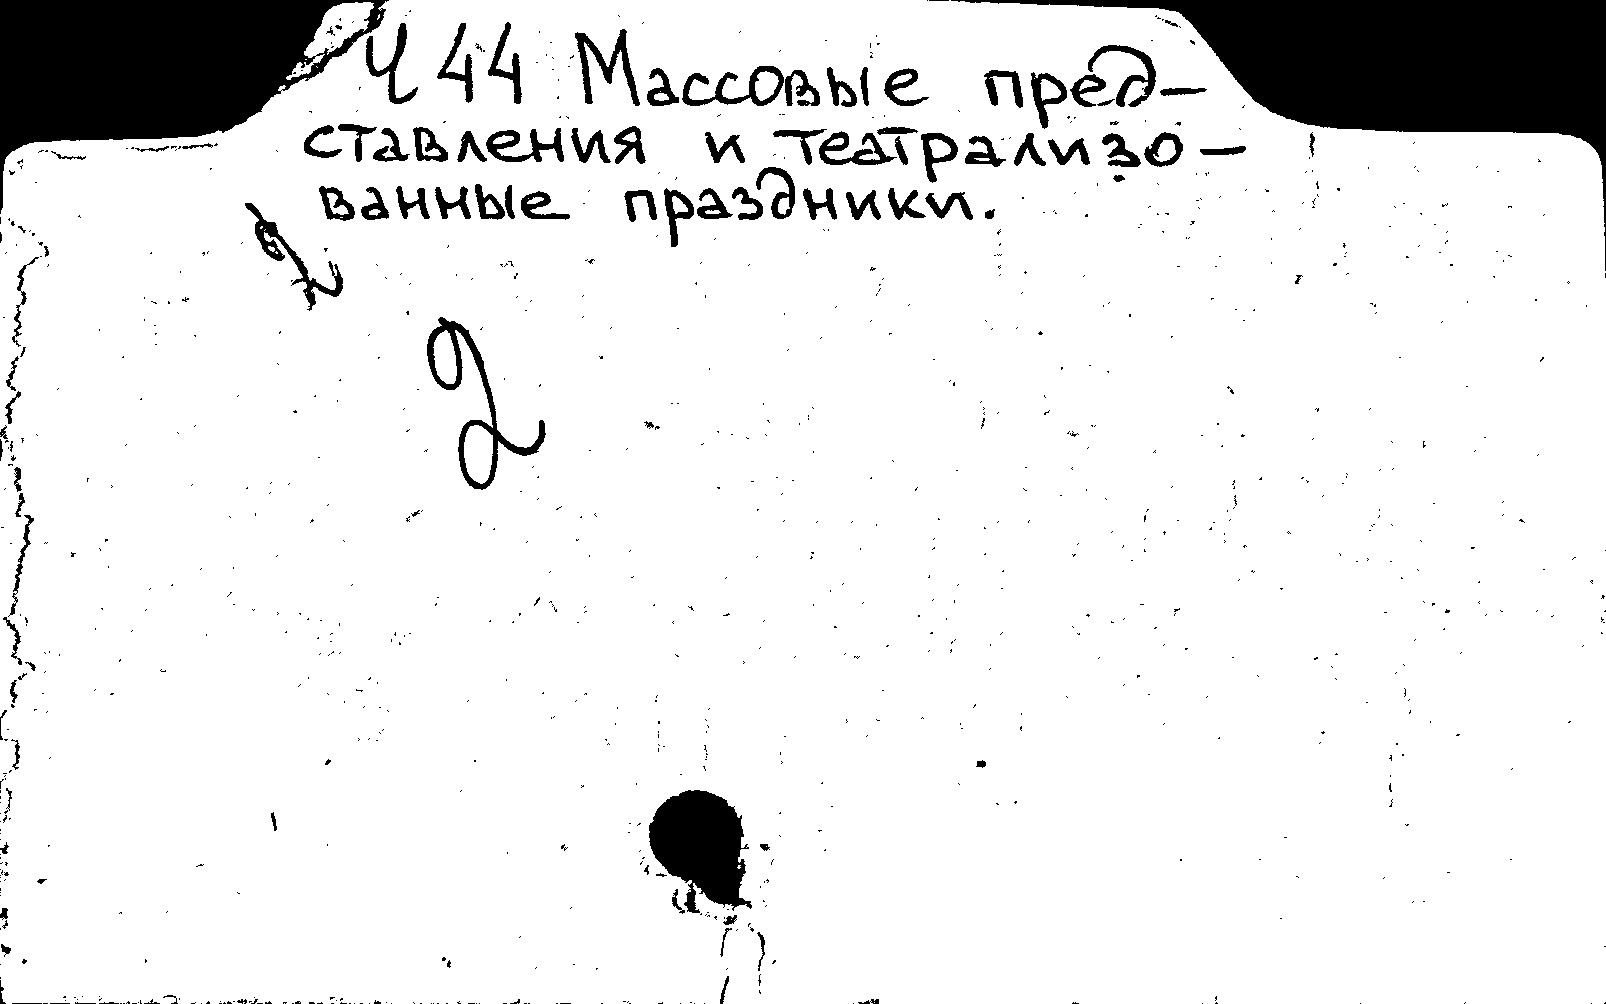 Ч 44 Массовые пред-
ставления и театрализо-
ванные праздники.
2